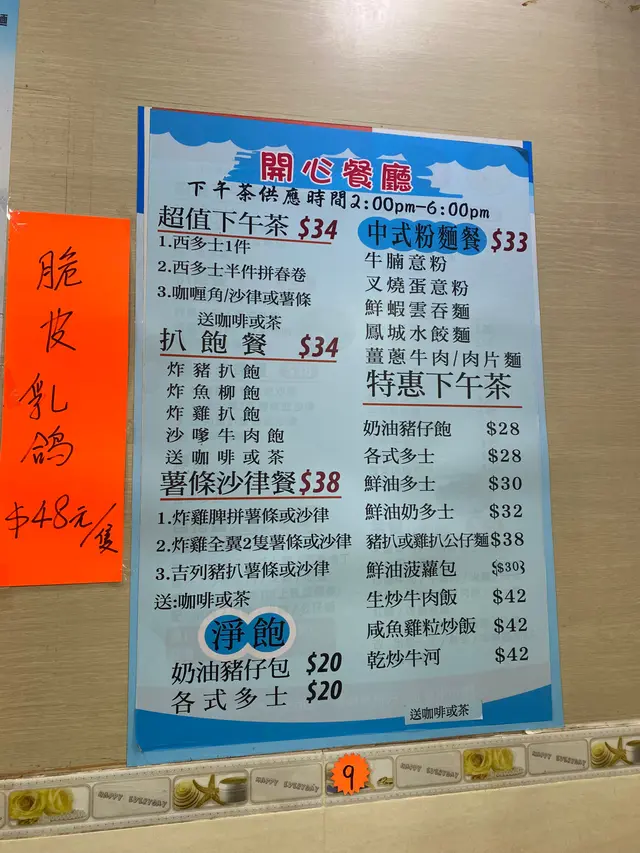 脆皮乳鴿
$48元/隻
開心餐廳
下午茶供應時間2:00pm-6:00pm
超值下午茶 $34
1.西多士1件
2.西多士半件拼春卷
3.咖喱角/沙律或薯條
送咖啡或茶
扒飽餐 $34
炸豬扒飽
炸魚柳飽
炸雞扒飽
沙嗲牛肉飽
送咖啡或茶
薯條沙律餐 $38
1.炸雞脾拼薯條或沙律
2.炸雞全翼2隻薯條或沙律
3.吉列豬扒薯條或沙律
送:咖啡或茶
淨飽
奶油豬仔包 $20
各式多士 $20
中式粉麵餐 $33
牛腩意粉
叉燒蛋意粉
鮮蝦雲吞麵
鳳城水餃麵
薑蔥牛肉/肉片麵
特惠下午茶
奶油豬仔飽 $28
各式多士 $28
鮮油多士 $30
鮮油奶多士 $32
豬扒或雞扒公仔麵 $38
鮮油菠蘿包 $30
生炒牛肉飯 $42
咸魚雞粒炒飯 $42
乾炒牛河 $42
送咖啡或茶
9
HAPPY EVERYDAY
HAPPY EVERYDAY
HAPPY EVERYDAY
HAPPY EVERYDAY